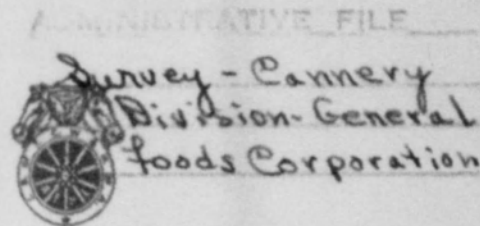 ADMINISTRATIVE FILE
Survey - Cannery
Division - General
Foods Corporation